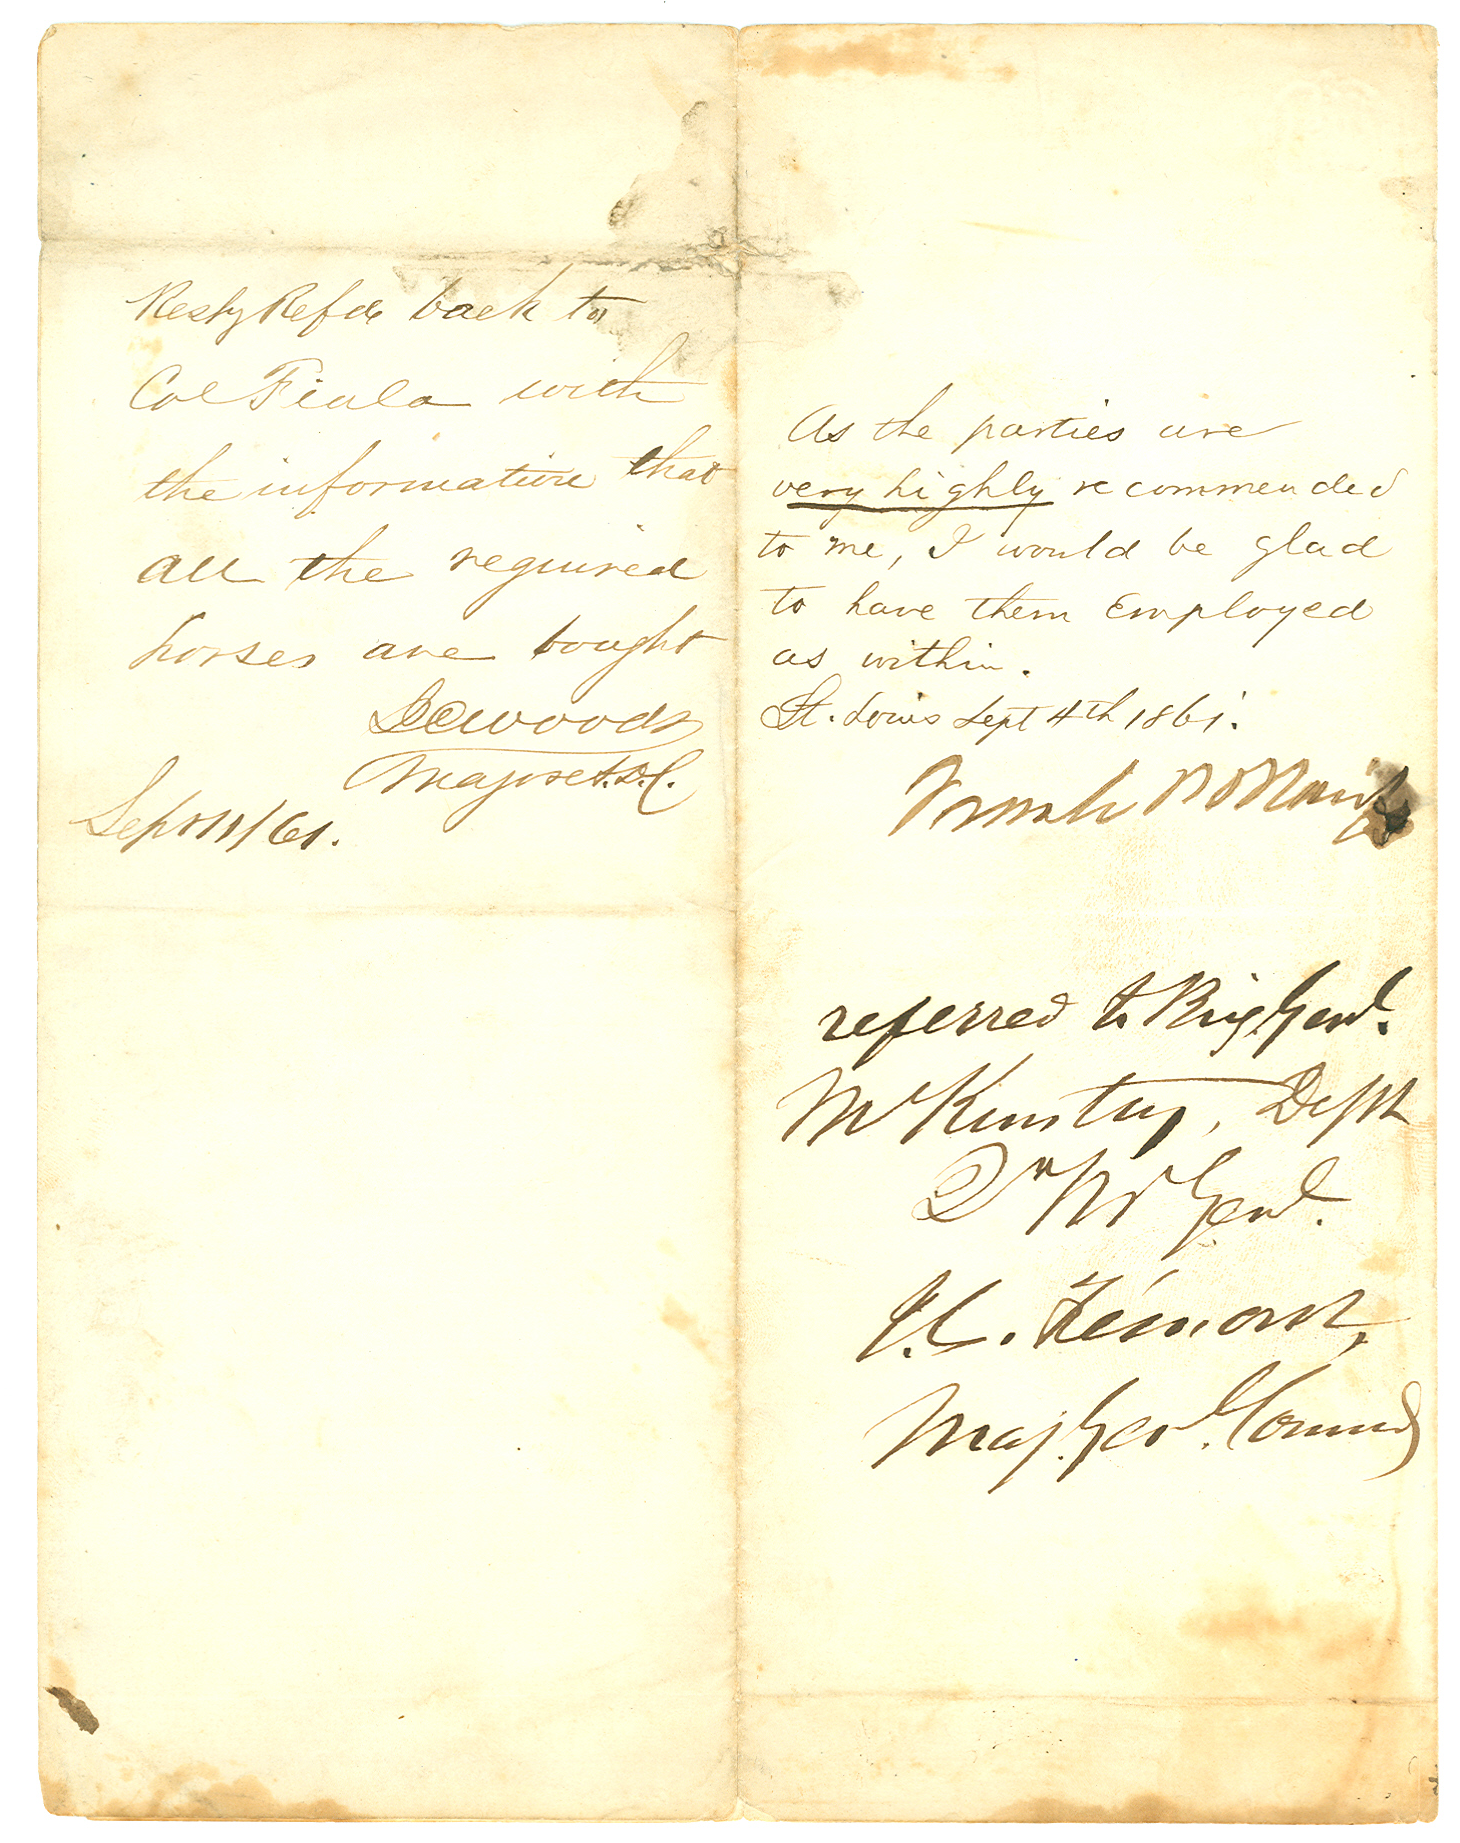 Resply Refd back to
Col Fiala with
the information that
all the required
horses are bought
I C Woods
Major & A.D.C.
Sept 11/61.
As the parties are
very highly recommended
to me, I would be glad
to have them Employed
as within.
St. Louis Sept 4th 1861.
Frank
referred to Brig. Genl.
McKinstry, Dept
Qr Mr Genl.
J. C. Frémont,
Maj. Genl. Comdg